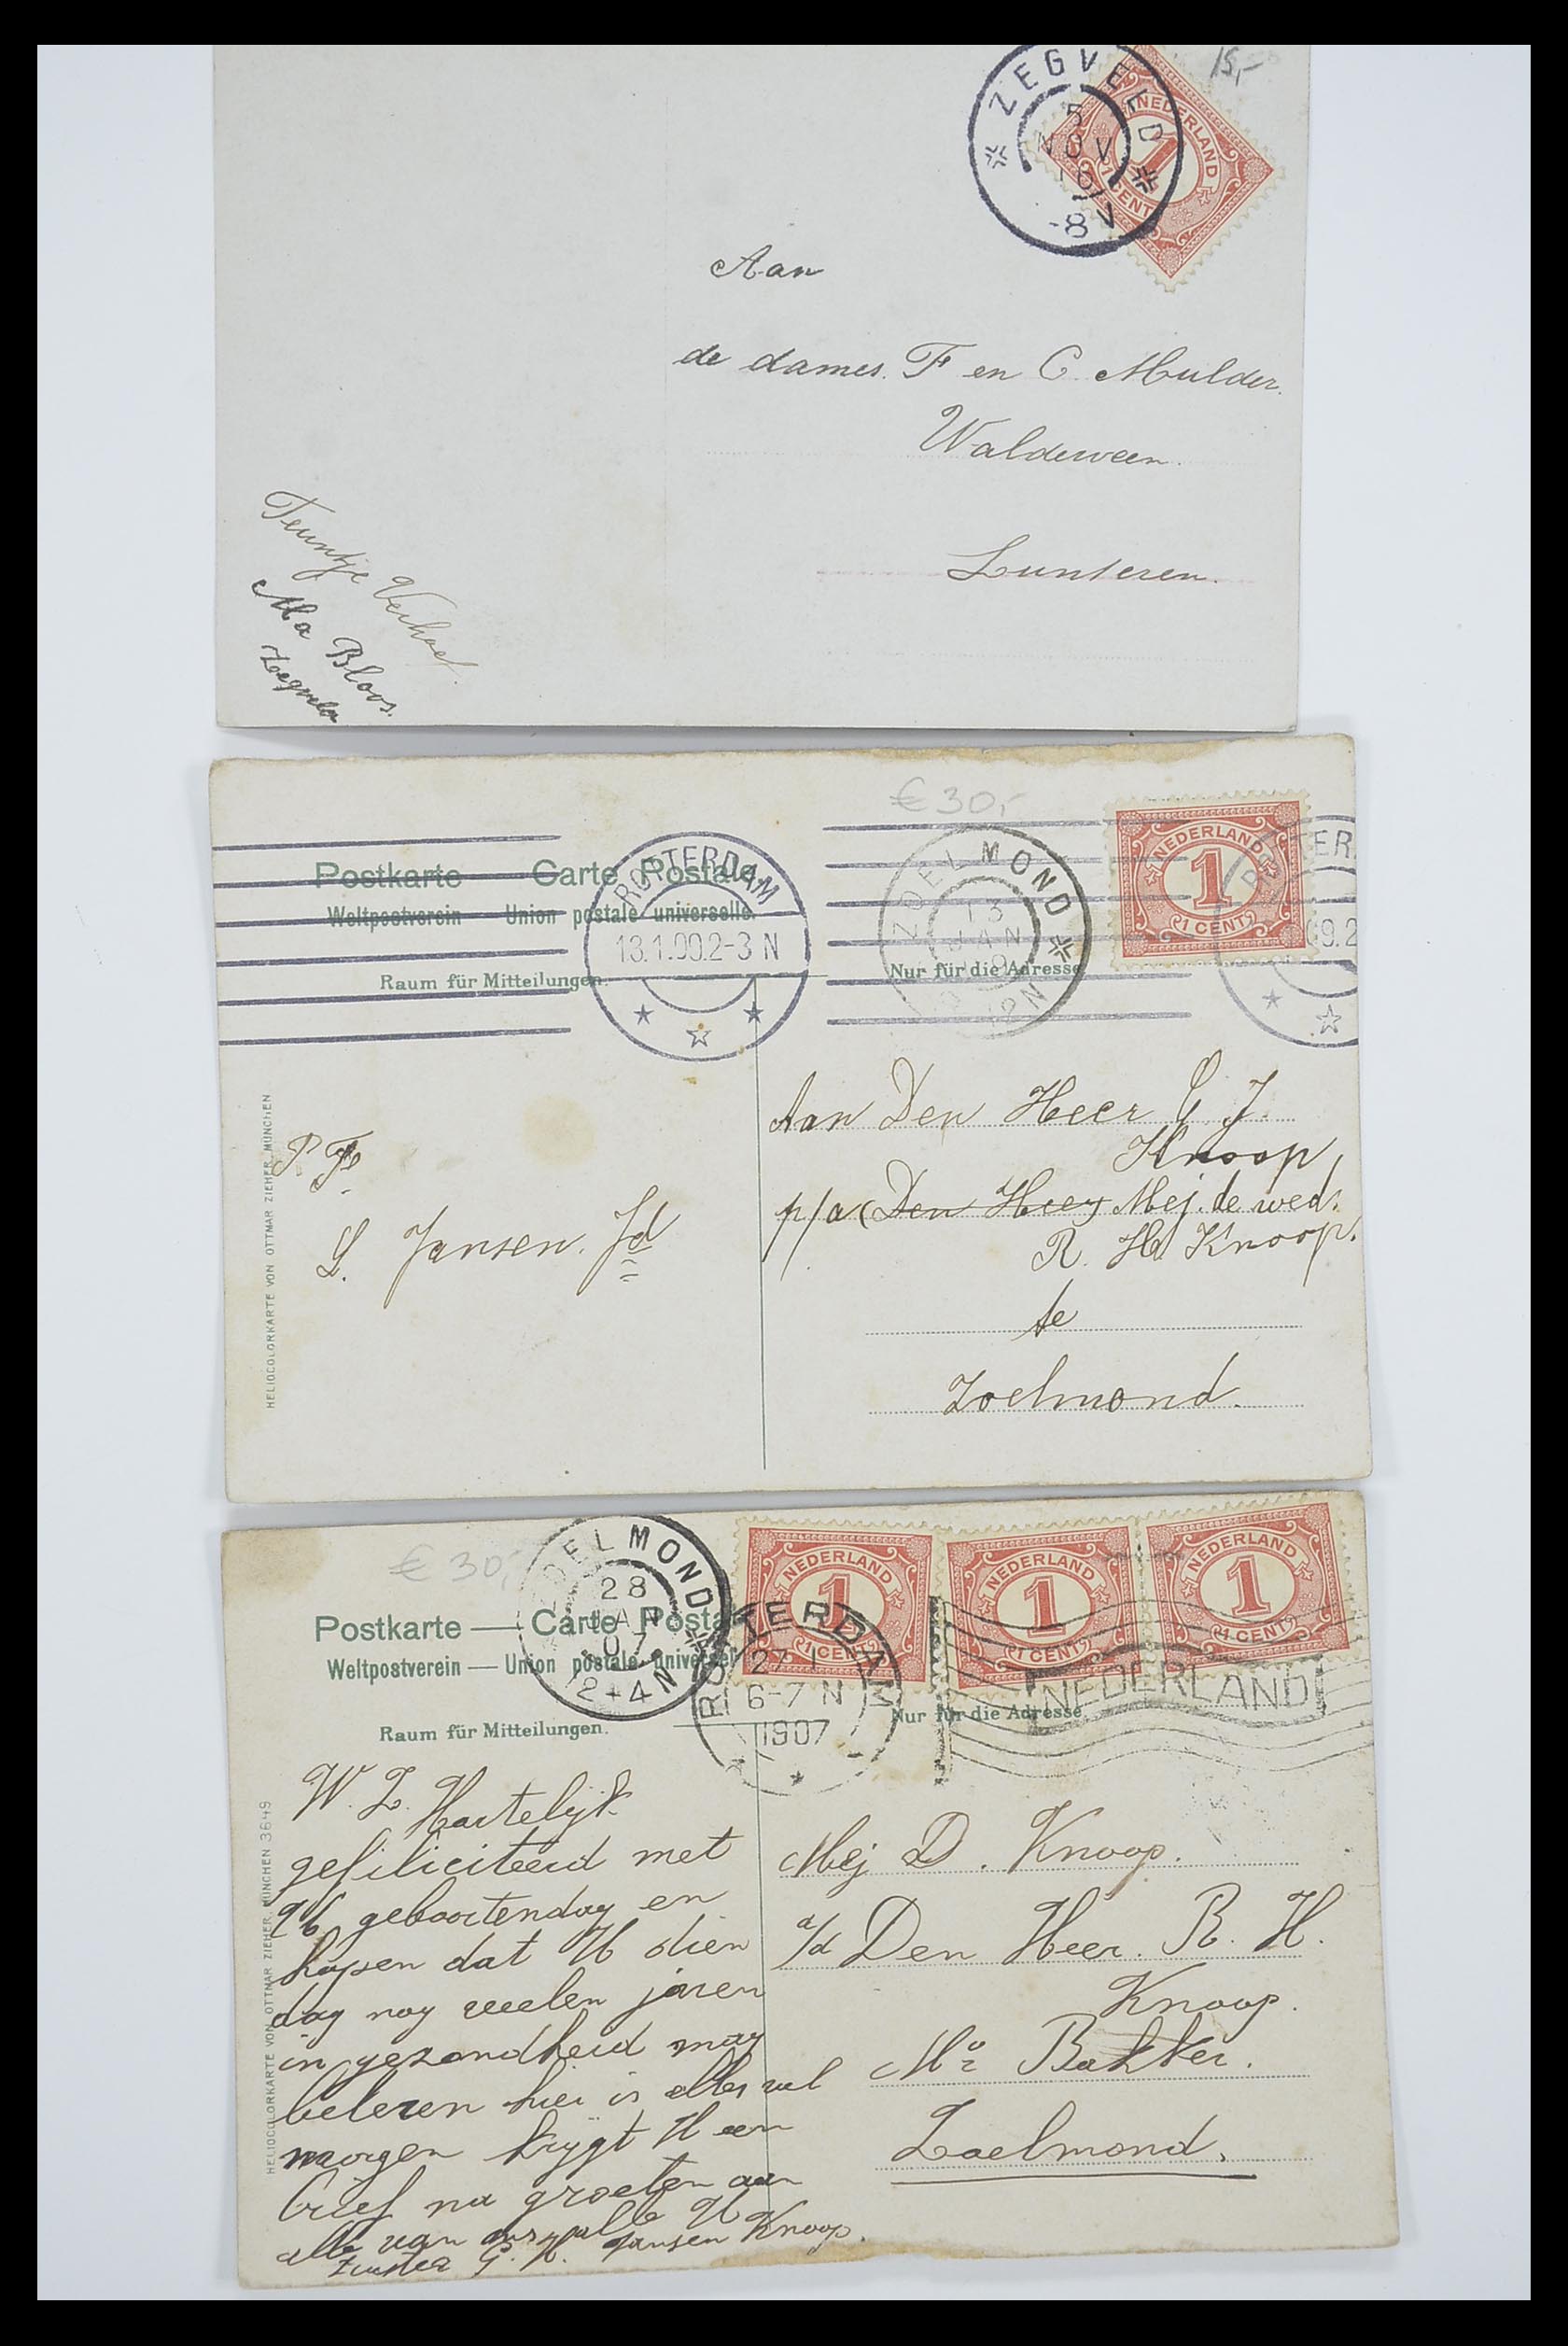 15,-
ZEGVELD
5
NOV
16
-8V
NEDERLAND
1
1 CENT
Aan
de dames. F en C. Mulder.
Walderveen.
Lunteren.
Teuntje Verhoef.
Ma Bloos.
Zegveld
€ 30,-
Postkarte — Carte Postale
Weltpostverein — Union postale universelle.
Raum für Mitteilungen.
Nur für die Adresse
ROTTERDAM
13.1.09.2-3 N
ZOELMOND
13
JAN
12N
NEDERLAND
1
1 CENT
HELIOCOLORKARTE VON OTTMAR ZIEHER, MÜNCHEN
P. F.
L. Jansen. Jd
Aan Den Heer C J.
Knoop,
p/a (Den Heer) Mej. de wed.
R. H. Knoop.
te
Zoelmond.
€ 30,-
ZOELMOND
28
JAN
2-4N
NEDERLAND
1
1 CENT
NEDERLAND
1
1 CENT
NEDERLAND
1
1 CENT
Postkarte — Carte Postal
Weltpostverein — Union postale universel
ROTTERDAM
27 1
6-7 N
1907
NEDERLAND
Raum für Mitteilungen.
Nur für die Adresse
HELIOCOLORKARTE VON OTTMAR ZIEHER, MÜNCHEN 3649
W. Z. Hartelijk
gefiliciteerd met
U geboortendag en
hopen dat U dien
dag nog veelen jaren
in gezondheid mag
beleven hier is alles wel
morgen krijgt U een
brief na groeten aan
alle van ons alle U
zuster G. H. Jansen Knoop.
Mej D. Knoop.
a/d Den Heer. R. H.
Knoop.
Mr Bakker.
Zoelmond.